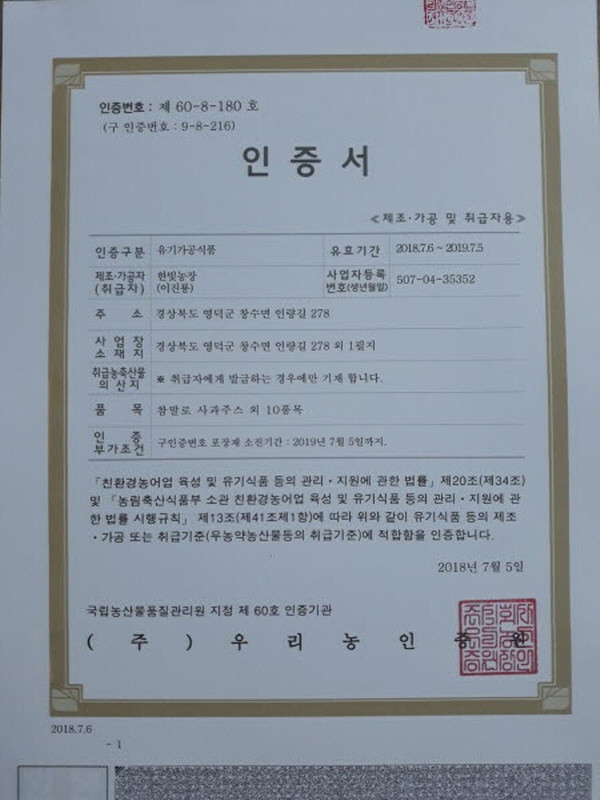 인증번호 : 제 60-8-180 호
(구 인증번호 : 9-8-216)
인 증 서
≪제조·가공 및 취급자용≫
인증구분 유기가공식품 유효기간 2018.7.6 ~ 2019.7.5
제조·가공자 한빛농장 사업자등록 507-04-35352
(취급자) (이진용) 번호(생년월일)
주 소 경상북도 영덕군 창수면 인량길 278
사 업 장 경상북도 영덕군 창수면 인량길 278 외 1필지
소 재 지
취급농축산물 ※ 취급자에게 발급하는 경우에만 기재 합니다.
의 산지
품 목 참말로 사과주스 외 10품목
인 증 구인증번호 포장재 소진기간 : 2019년 7월 5일까지.
부가조건
「친환경농어업 육성 및 유기식품 등의 관리·지원에 관한 법률」제20조(제34조)
및 「농림축산식품부 소관 친환경농어업 육성 및 유기식품 등의 관리·지원에 관
한 법률 시행규칙」 제13조(제41조제1항)에 따라 위와 같이 유기식품 등의 제조
·가공 또는 취급기준(무농약농산물등의 취급기준)에 적합함을 인증합니다.
2018년 7월 5일
국립농산물품질관리원 지정 제 60호 인증기관
( 주 ) 우 리 농 인 증 원
2018.7.6
- 1